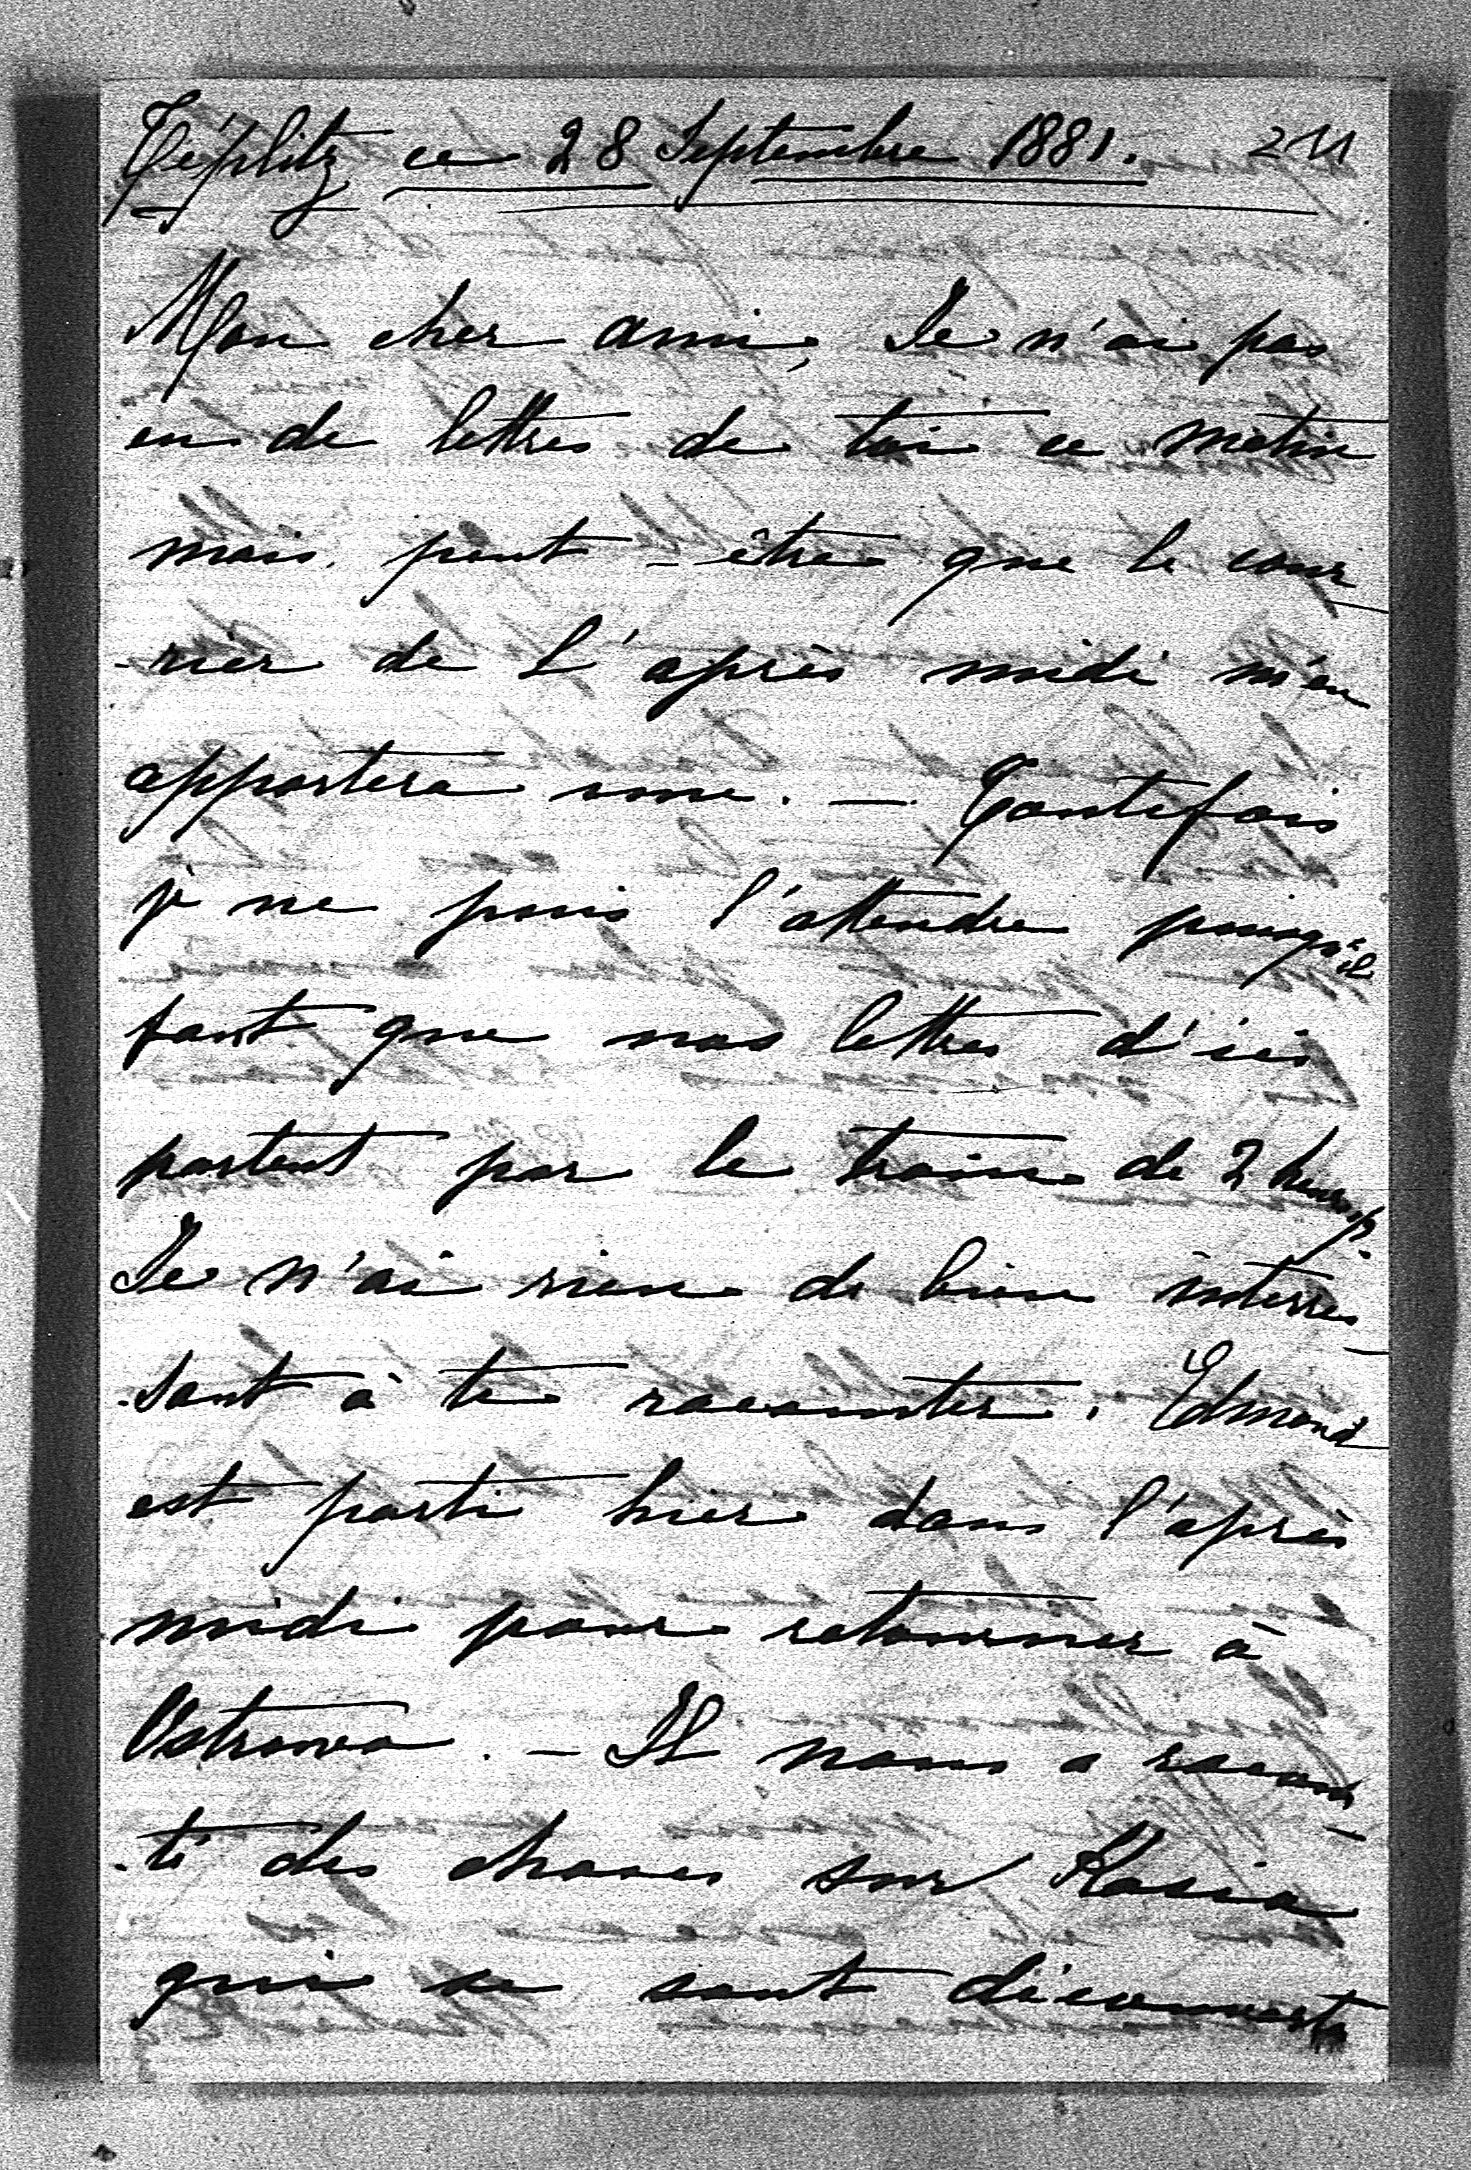 Téplitz ce 28 Septembre 1881. 211
Mon cher ami, Je n'ai pas
eu de lettres de toi ce matin
mais peut-être que le cour
-rier de l'après midi m'en
apportera une. — Toutefois
je ne puis l'attendre puisqu'il
faut que nos lettres d'ici
partent par le train de 2 heures
Je n'ai rien de bien interres
-sant à te raconter. Edmond
est parti hier dans l'après
midi pour retourner à
Ostrowo. — Il nous a racon
-té des choses sur Kasia
qui se sont découverts